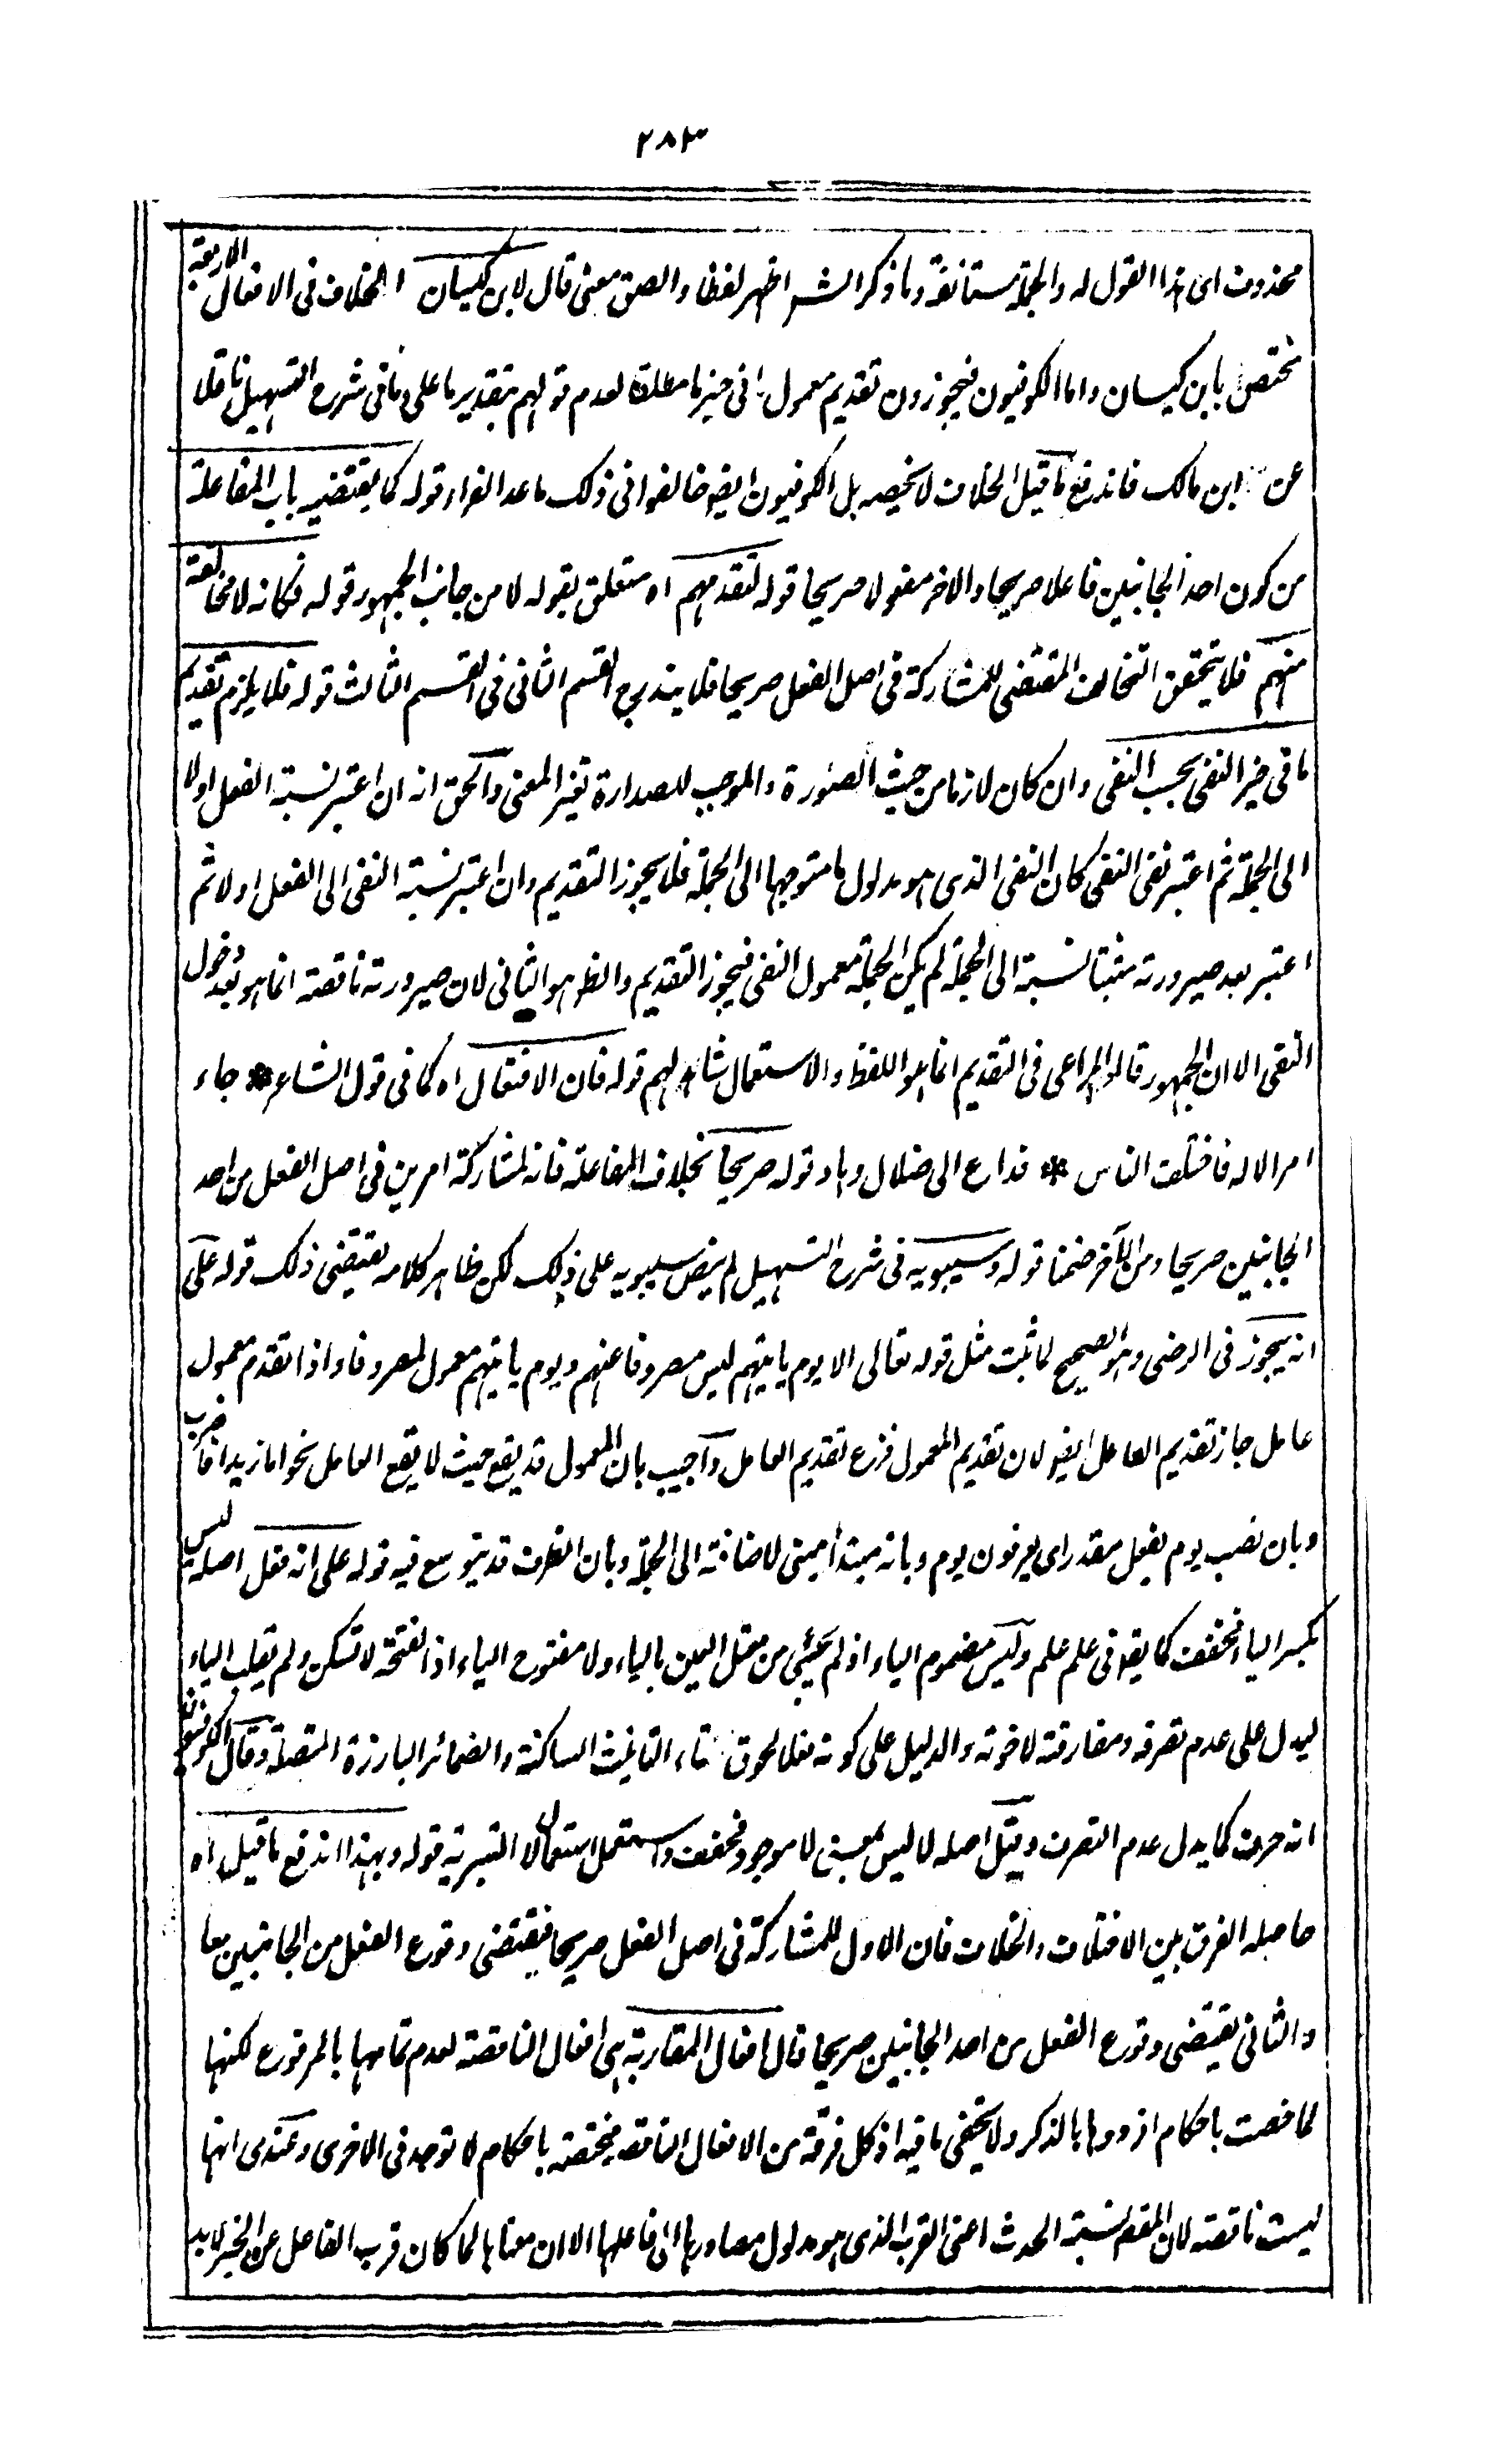 ٢٨٣
محذوف اى هذا القول له والجملة مستانفة وما ذكر الشر اظهر لفظا والصق معنى قال لابن كيسان الخلاف فى الافعال الاربعة
مختص بابن كيسان واما الكوفيون فيجوزون تقديم معمول ما فى حيز ما مطلقا لعدم قولهم بتقدير ما على وما فى شرح التسهيل ناقلا
عن ابن مالك فاندفع ما قيل الخلاف لا يخصه بل الكوفيون ايض خالفوا فى ذلك ما عدا الفراء قوله كما يقتضيه باب المفاعلة
من كون احد الجانبين فاعلا صريحا والاخر مفعولا صريحا قوله لتقدمهم اه متعلق بقوله لا من جانب الجمهور قوله فكانه لا مخالفة
منهم فلا يتحقق التخالف المقتضى للمشاركة فى اصل الفعل صريحا فلا يندرج القسم الثانى فى القسم الثالث قوله فلا يلزم تقديم
ما فى حيز النفى بحسب النفى وان كان لازما من حيث الصورة والموجب للصدارة تغير المعنى والحق انه ان اعتبر نسبة الفعل اولا
الى الجملة ثم اعتبر نفى النفى كان النفى الذى هو مدلول ما متوجها الى الجملة فلا يجوز التقديم وان اعتبر نسبة النفى الى الفعل اولا ثم
اعتبر بعد صيرورته مثبتا نسبة الى الجملة لم يكن الجملة معمول النفى فيجوز التقديم والظ هو الثانى لان صيرورته ناقصة انما هو بعد دخول
النفى الا ان الجمهور قالوا المراعى فى التقديم انما هو اللفظ والاستعمال شاهد لهم قوله فان الافتعال اه كما فى قول الشاعر * جاء
امر الاله فاختلف الناس * فداع الى ضلال وهاد قوله صريحا بخلاف المفاعلة فانه لمشاركة امرين فى اصل الفعل من احد
الجانبين صريحا ومن الآخر ضمنا قوله وسيبويه فى شرح التسهيل لم ينص سيبويه على ذلك لكن ظاهر كلامه يقتضى ذلك قوله على
انه يجوز فى الرضى وهو الصحيح لما ثبت مثل قوله تعالى الا يوم ياتيهم ليس مصروفا عنهم ويوم ياتيهم معمول لمصروفا واذا تقدم معمول
عامل جاز تقديم العامل ايض لان تقديم المعمول فرع تقديم العامل واجيب بان المعمول قد يقع حيث لا يقع العامل نحو اما زيدا فاضرب
وبان نصب يوم بفعل مقدر اى يعرفون يوم وبانه مبتدأ مبنى لاضافته الى الجملة وبان الظرف قد يتوسع فيه قوله على انه فعل اصله ليس
بكسر الياء فخففت كما يقو فى علم علم وليس مضموم الياء اذ لم يجئ من معتل العين بالياء ولا مفتوح الياء اذ الفتحة لا تسكن ولم يقلب الياء
ليدل على عدم تصرفه ومفارقته لاخوته والدليل على كونه فعلا لحوق تاء التانيث الساكنة والضمائر البارزة المتصلة وقال الكوفيون
انه حرف كما يدل عدم التصرف وقيل اصله لا ليس بمعنى لا موجود فخففت واستعمل استعمال لا التبرية قوله وبهذا اندفع ما قيل اه
حاصله الفرق بين الاختلاف والخلاف فان الاول للمشاركة فى اصل الفعل صريحا فيقتضى وقوع الفعل من الجانبين معا
والثانى يقتضى وقوع الفعل من احد الجانبين صريحا قال افعال المقاربة هى افعال الناقصة لعدم تمامها بالمرفوع لكنها
لما خصت باحكام افردوها بالذكر ولا يخفى ما فيه اذ كل فرقة من الافعال الناقصة مختصة باحكام لا توجد فى الاخرى وعندى انها
ليست ناقصة لان المقص نسبة الحدث اعنى القرب الذى هو مدلول مصادرها الى فاعلها الا ان معناها لما كان قرب الفاعل عن الخبر لابد